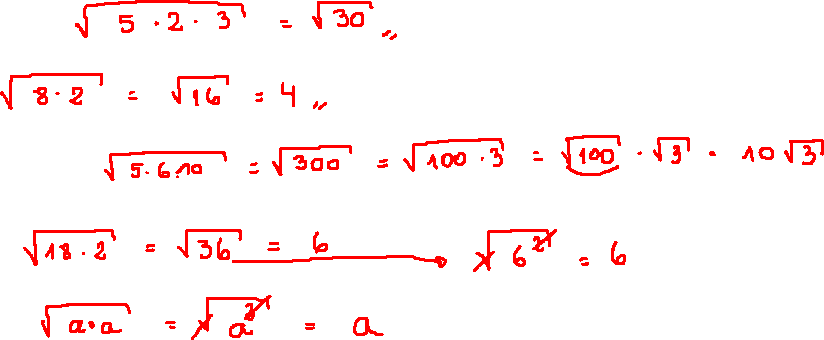 √(5 · 2 · 3) = √30 //
√(8 · 2) = √16 = 4 //
√(5 · 6 · 10) = √300 = √(100 · 3) = √100 · √3 = 10 √3
√(18 · 2) = √36 = 6 → √(6²) = 6
√(a · a) = √(a²) = a